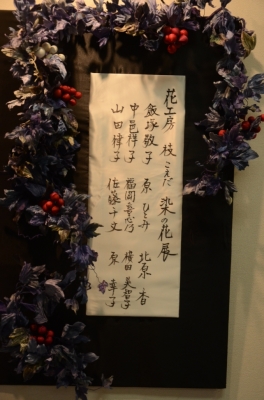 花工房 枝 こえだ 染の花展
飯塚敬子 原 ひとみ 北原 香
中邑祥子 福岡 横田 美智子
山田祥子 佐藤千文 原 幸子